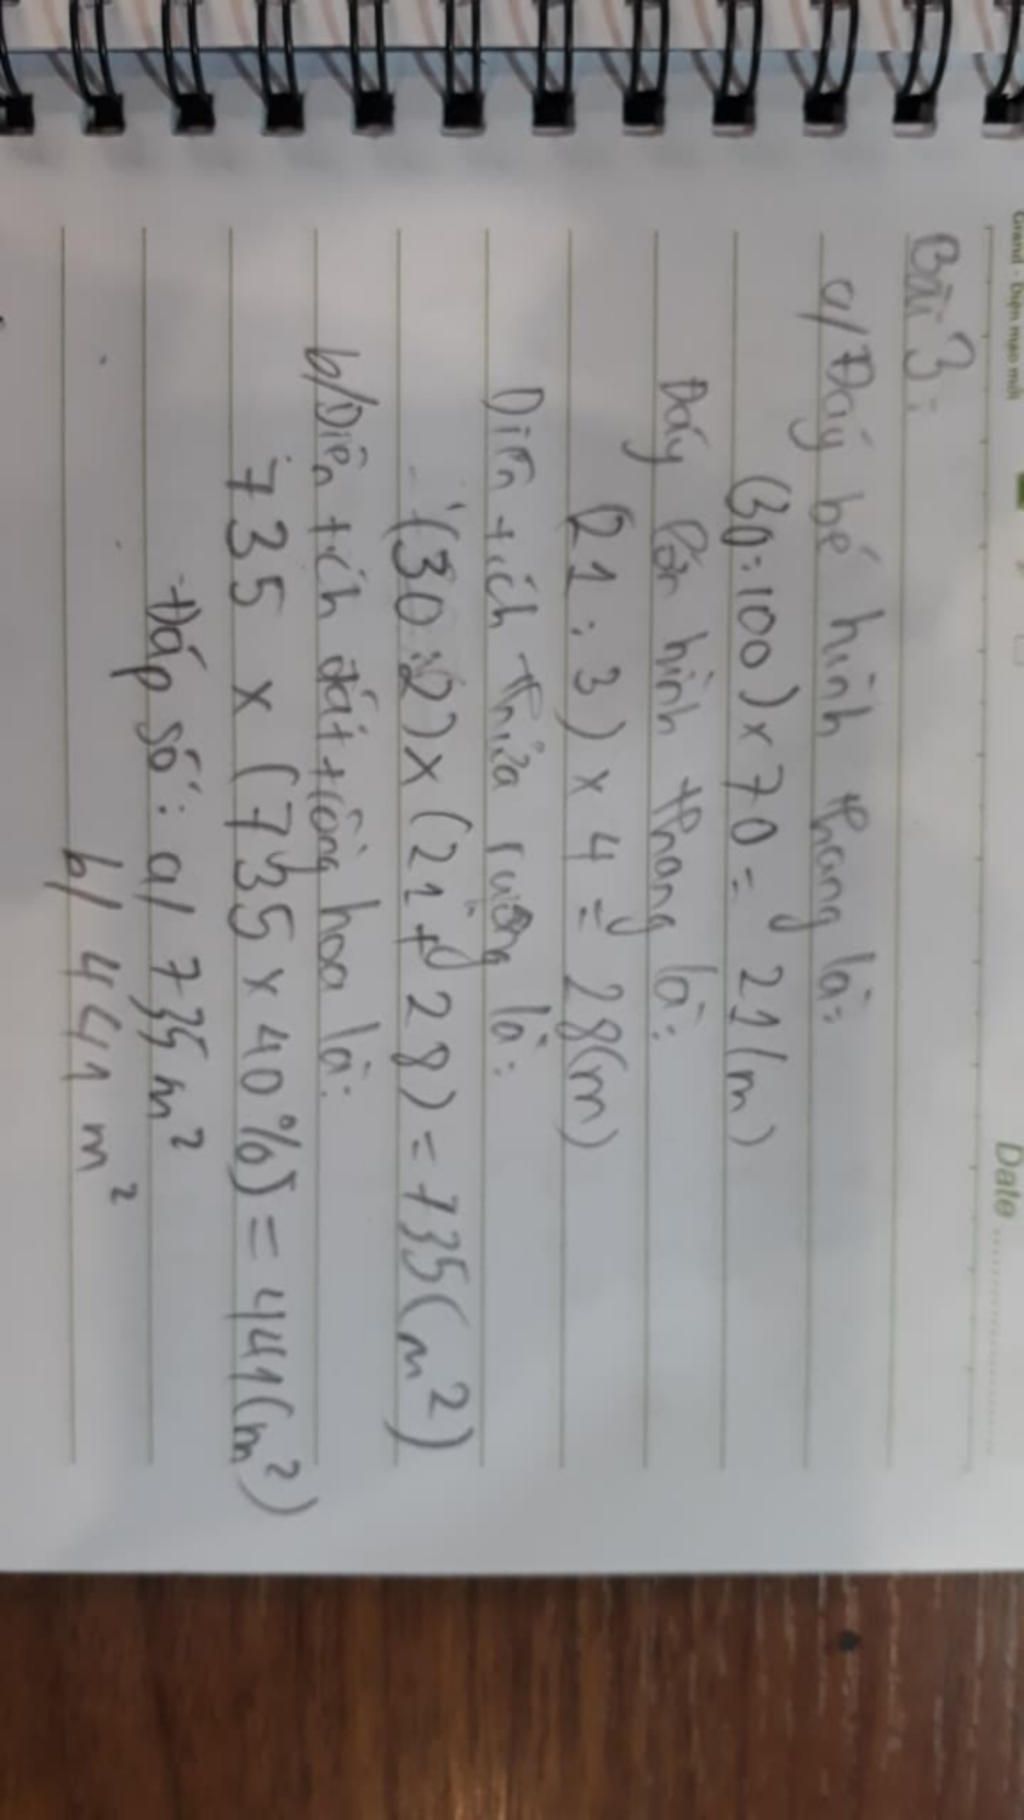 Grand - Diện mạo mới
Date
Bài 3:
a/ Đáy bé hình thang là:
(30:100) x 70 = 21(m)
Đáy lớn hình thang là:
(21:3) x 4 = 28(m)
Diện tích thửa ruộng là:
(30:2) x (21+28) = 735(m²)
b/ Diện tích đất trồng hoa là:
735 x (735 x 40%) = 441(m²)
Đáp số: a/ 735 m²
b/ 441 m²